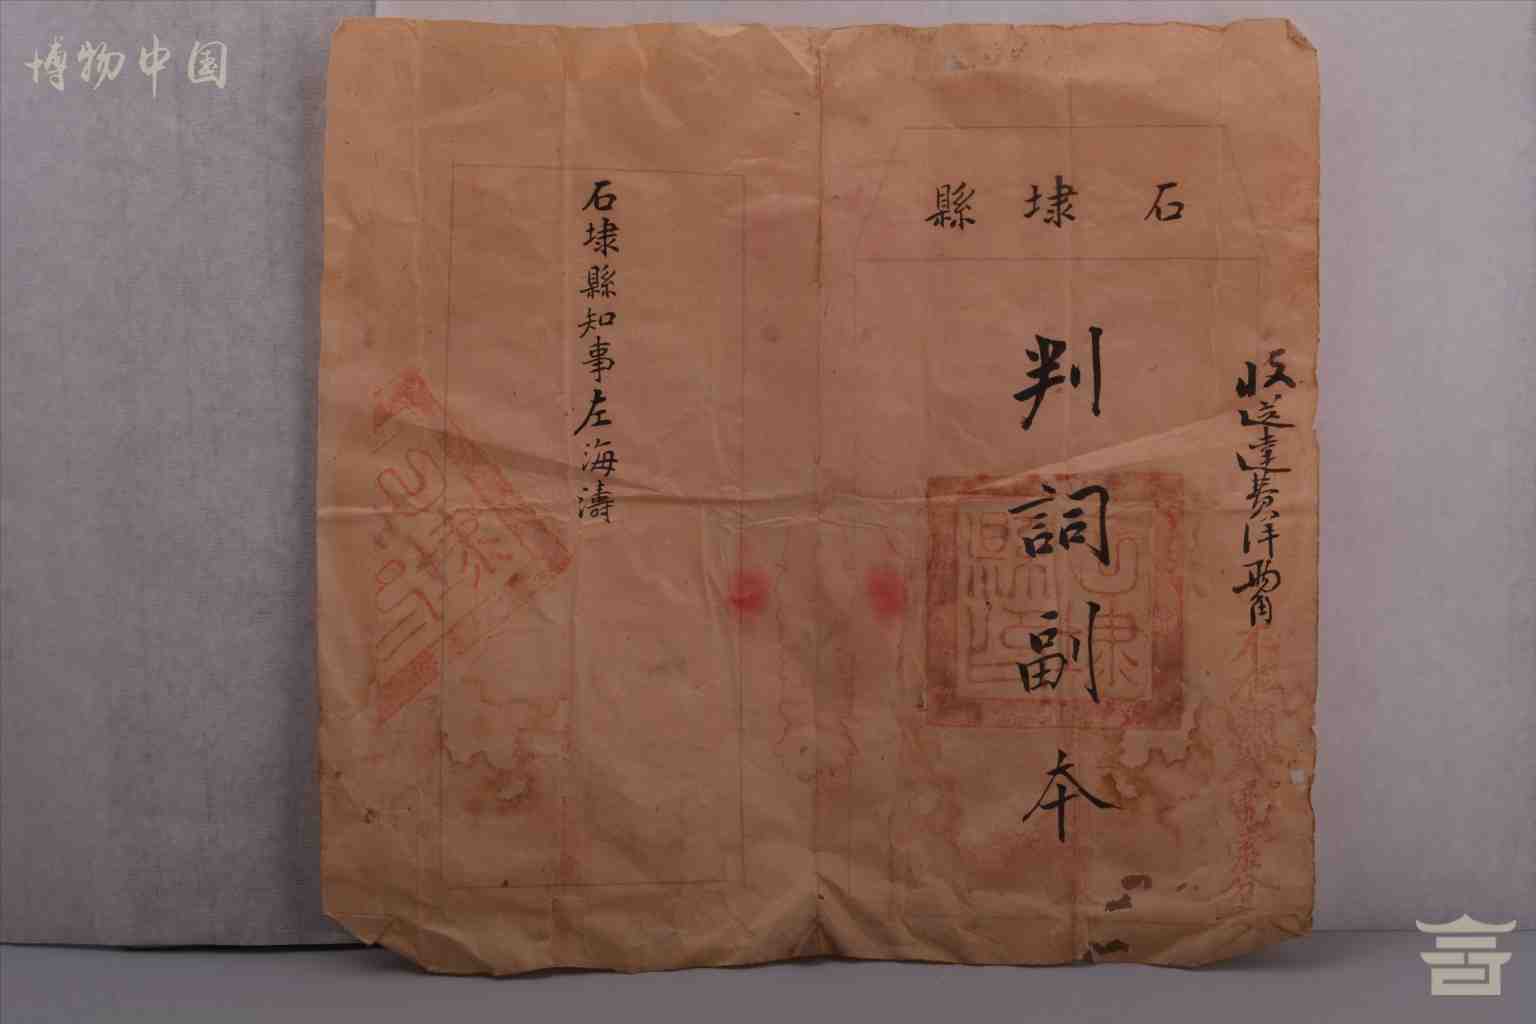 博物中国
收送達費洋兩角
石埭縣
判詞副本
石埭縣知事左海濤